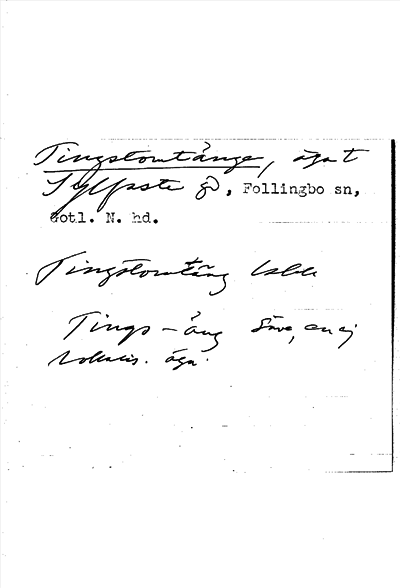 Tingstomtänge, äga t
Sylfaste gd, Follingbo sn,
Gotl. N. hd.
Tingstomtäng
Tings-äng Säve, en ej
lokalis. äga.